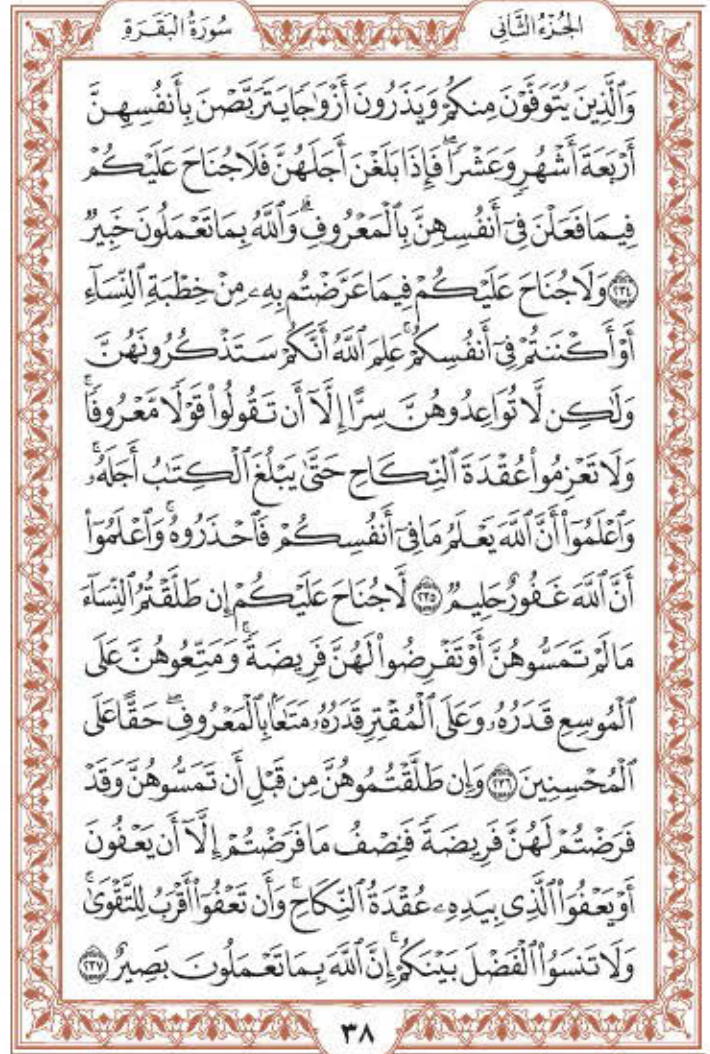 الجُزْءُ الثَّانِي
سُورَةُ الْبَقَرَةِ
وَٱلَّذِينَ يُتَوَفَّوْنَ مِنكُمْ وَيَذَرُونَ أَزْوَٰجًا يَتَرَبَّصْنَ بِأَنفُسِهِنَّ
أَرْبَعَةَ أَشْهُرٍ وَعَشْرًاۖ فَإِذَا بَلَغْنَ أَجَلَهُنَّ فَلَا جُنَاحَ عَلَيْكُمْ
فِيمَا فَعَلْنَ فِىٓ أَنفُسِهِنَّ بِٱلْمَعْرُوفِۗ وَٱللَّهُ بِمَا تَعْمَلُونَ خَبِيرٌ
٢٣٤ وَلَا جُنَاحَ عَلَيْكُمْ فِيمَا عَرَّضْتُم بِهِۦ مِنْ خِطْبَةِ ٱلنِّسَآءِ
أَوْ أَكْنَنتُمْ فِىٓ أَنفُسِكُمْۚ عَلِمَ ٱللَّهُ أَنَّكُمْ سَتَذْكُرُونَهُنَّ
وَلَٰكِن لَّا تُوَاعِدُوهُنَّ سِرًّا إِلَّآ أَن تَقُولُوا۟ قَوْلًا مَّعْرُوفًاۚ
وَلَا تَعْزِمُوا۟ عُقْدَةَ ٱلنِّكَاحِ حَتَّىٰ يَبْلُغَ ٱلْكِتَٰبُ أَجَلَهُۥۚ
وَٱعْلَمُوٓا۟ أَنَّ ٱللَّهَ يَعْلَمُ مَا فِىٓ أَنفُسِكُمْ فَٱحْذَرُوهُۚ وَٱعْلَمُوٓا۟
أَنَّ ٱللَّهَ غَفُورٌ حَلِيمٌ ٢٣٥ لَّا جُنَاحَ عَلَيْكُمْ إِن طَلَّقْتُمُ ٱلنِّسَآءَ
مَا لَمْ تَمَسُّوهُنَّ أَوْ تَفْرِضُوا۟ لَهُنَّ فَرِيضَةًۚ وَمَتِّعُوهُنَّ عَلَى
ٱلْمُوسِعِ قَدَرُهُۥ وَعَلَى ٱلْمُقْتِرِ قَدَرُهُۥ مَتَٰعًۢا بِٱلْمَعْرُوفِۖ حَقًّا عَلَى
ٱلْمُحْسِنِينَ ٢٣٦ وَإِن طَلَّقْتُمُوهُنَّ مِن قَبْلِ أَن تَمَسُّوهُنَّ وَقَدْ
فَرَضْتُمْ لَهُنَّ فَرِيضَةً فَنِصْفُ مَا فَرَضْتُمْ إِلَّآ أَن يَعْفُونَ
أَوْ يَعْفُوَا۟ ٱلَّذِى بِيَدِهِۦ عُقْدَةُ ٱلنِّكَاحِۚ وَأَن تَعْفُوٓا۟ أَقْرَبُ لِلتَّقْوَىٰۚ
وَلَا تَنسَوُا۟ ٱلْفَضْلَ بَيْنَكُمْۚ إِنَّ ٱللَّهَ بِمَا تَعْمَلُونَ بَصِيرٌ ٢٣٧
٣٨